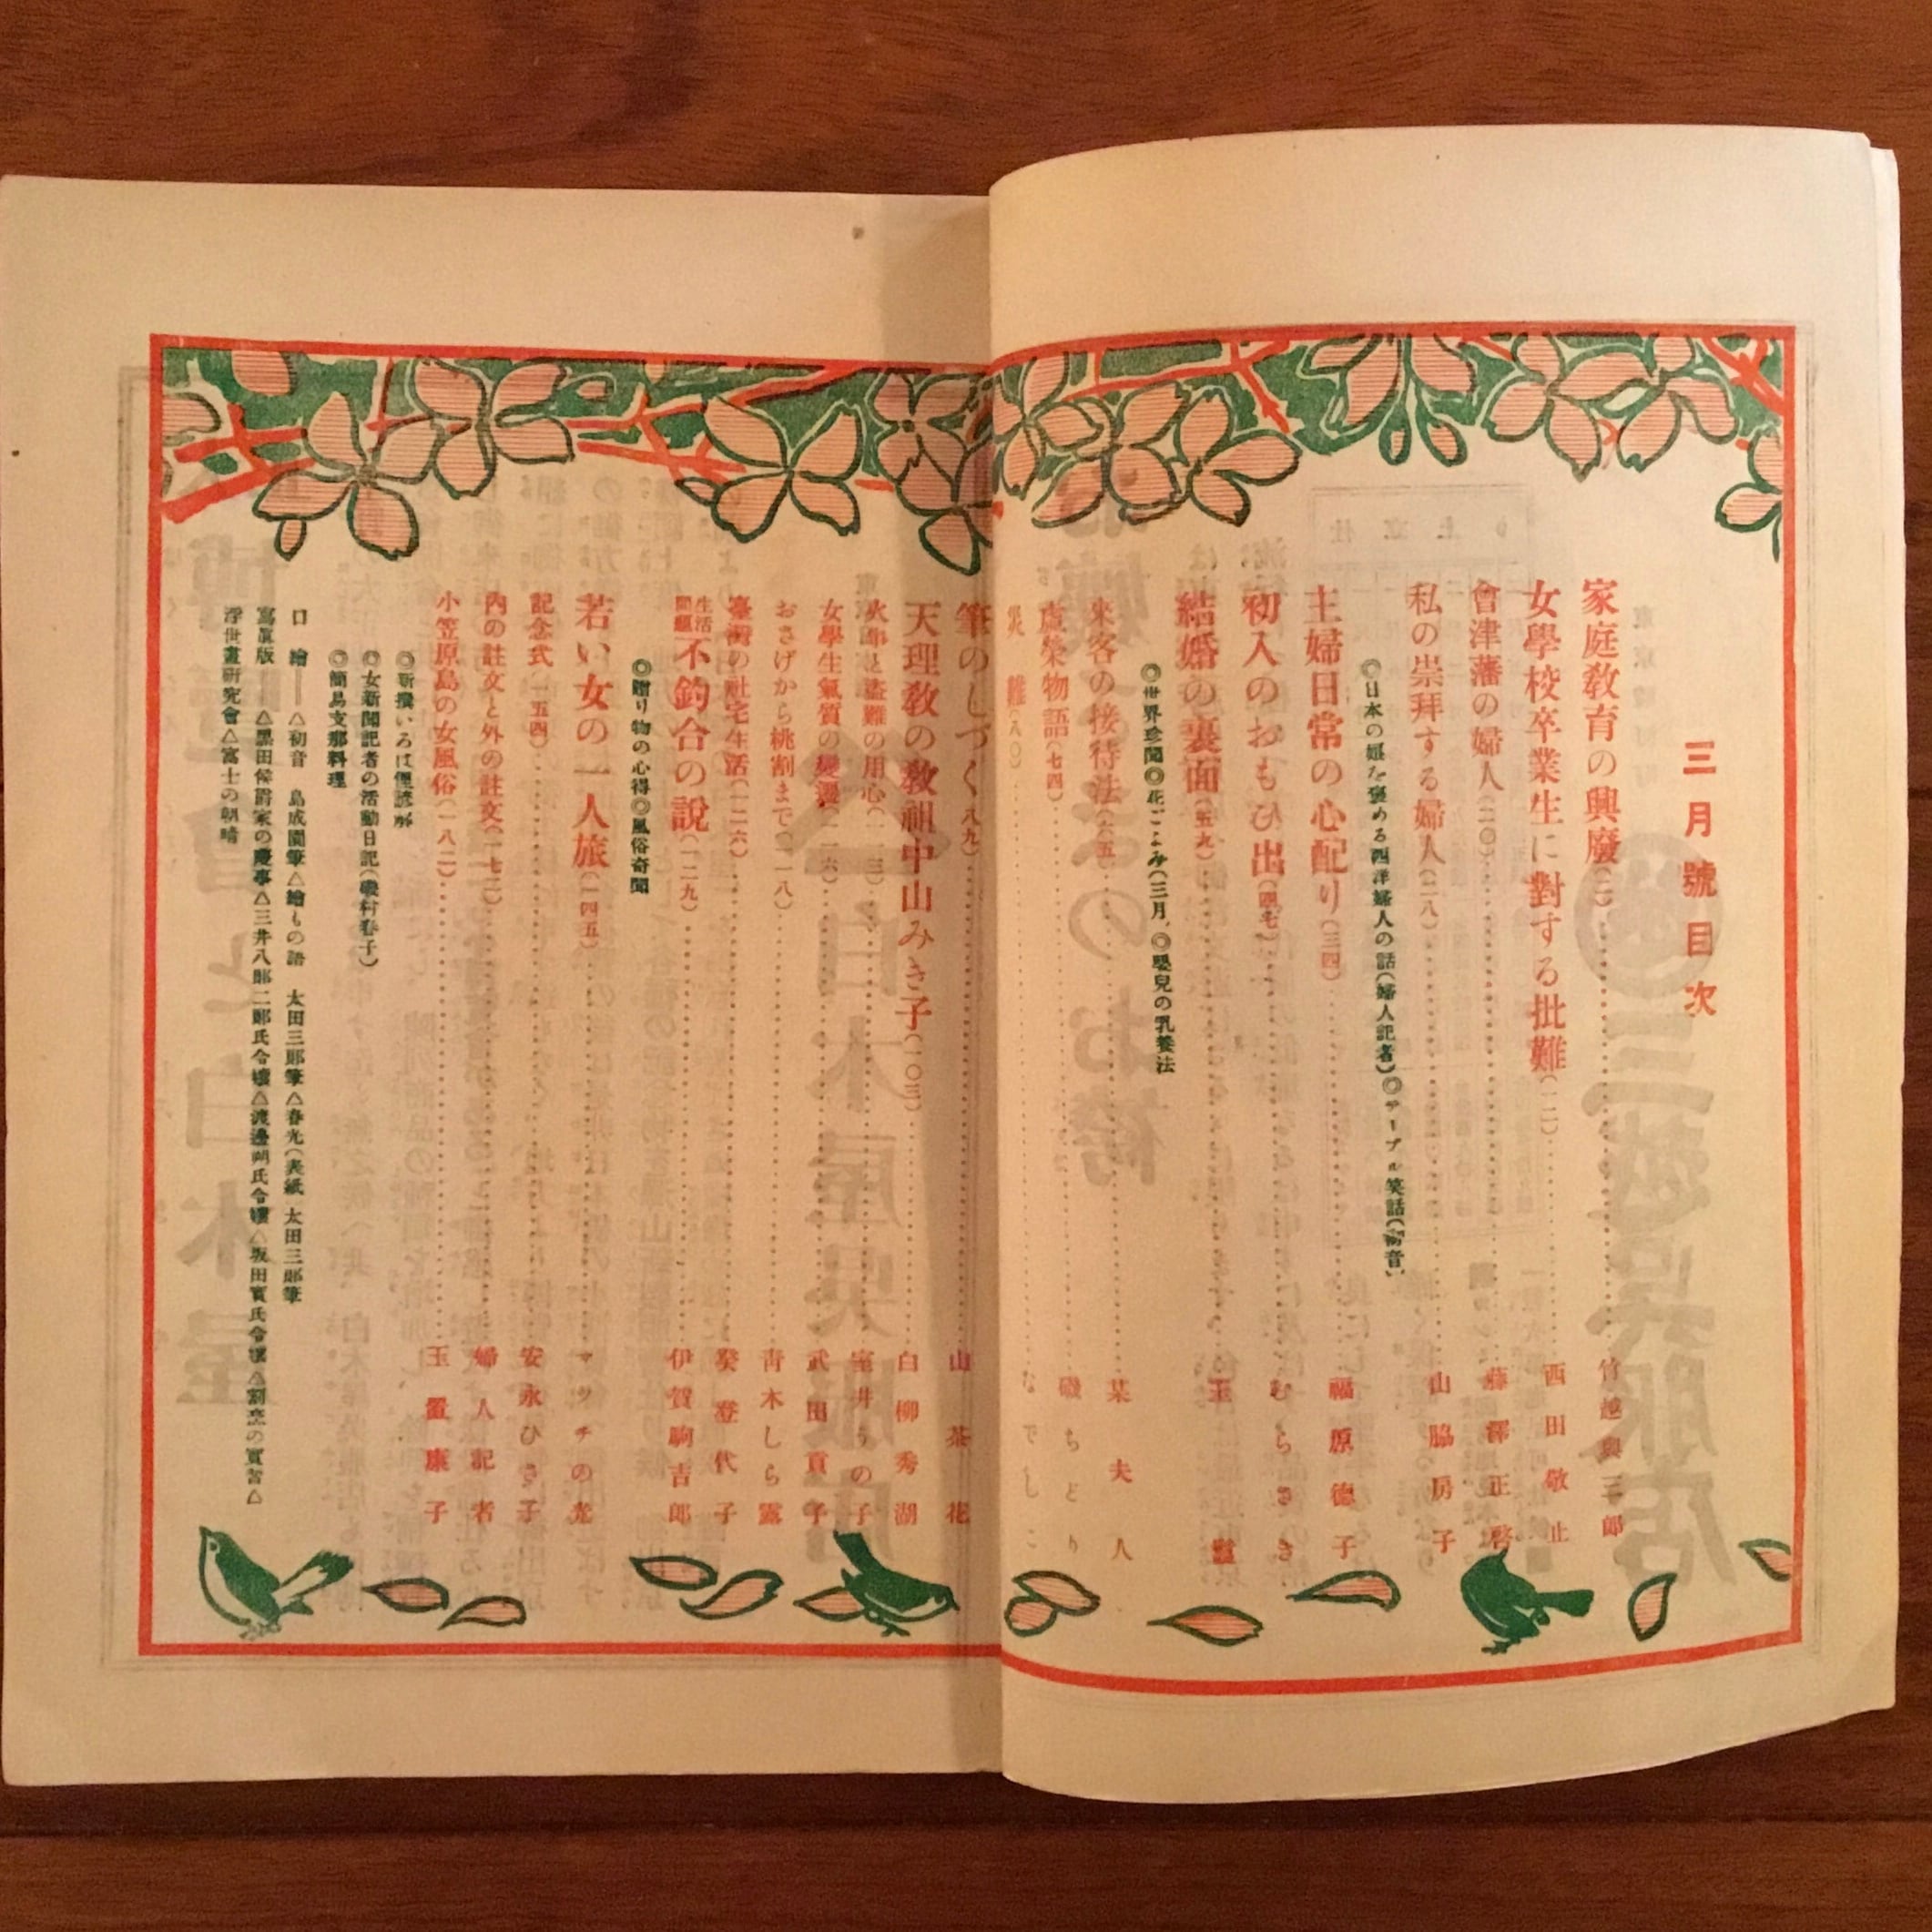 三月號目次
家庭教育の興廢(二)……竹越與三郎
女學校卒業生に對する批難(一二)……西田敬止
會津藩の婦人(二〇)……藤澤正啓
私の崇拜する婦人(二八)……山脇房子
◎日本の娘を褒める西洋婦人の話(婦人記者)◎テーブル笑話(初音)
主婦日常の心配り(三四)……福原德子
初入のおもひ出(四七)……むらさき
結婚の裏面(五九)……玉鑾
◎世界珍聞◎花ごよみ(三月)◎嬰兒の乳養法
來客の接待法(六五)……某夫人
虛榮物語(七四)……磯ちどり
難(八〇)……なでしこ
筆のしづく(八九)……山茶花
天理敎の敎祖中山みき子(一〇三)……白柳秀湖
火事と盜難の用心(一一三)……室井うの子
女學生氣質の變遷(一一六)……武田貢子
おさげから桃割まで(一一八)……靑木しら露
臺灣の社宅生活(一二六)……癸澄代子
生活問題不釣合の說(一二九)……伊賀駒吉郎
◎贈り物の心得◎風俗奇聞
若い女の一人旅(一四五)……マッチの光
記念式(一五四)……安永ひさ子
內の註文と外の註文(一七二)……婦人記者
小笠原島の女風俗(一八二)……玉置康子
◎新撰いろは俚諺解
◎女新聞記者の活動日記(磯村春子)
◎簡易支那料理
口繪——△初音 島成園筆△繪もの語 太田三郞筆△春光(表紙 太田三郞筆
寫眞版 △黑田侯爵家の慶事△三井八郞二郞氏令孃△渡邊朔氏令孃△坂田實氏令孃△割烹の實習△
浮世畫硏究會△富士の朝晴